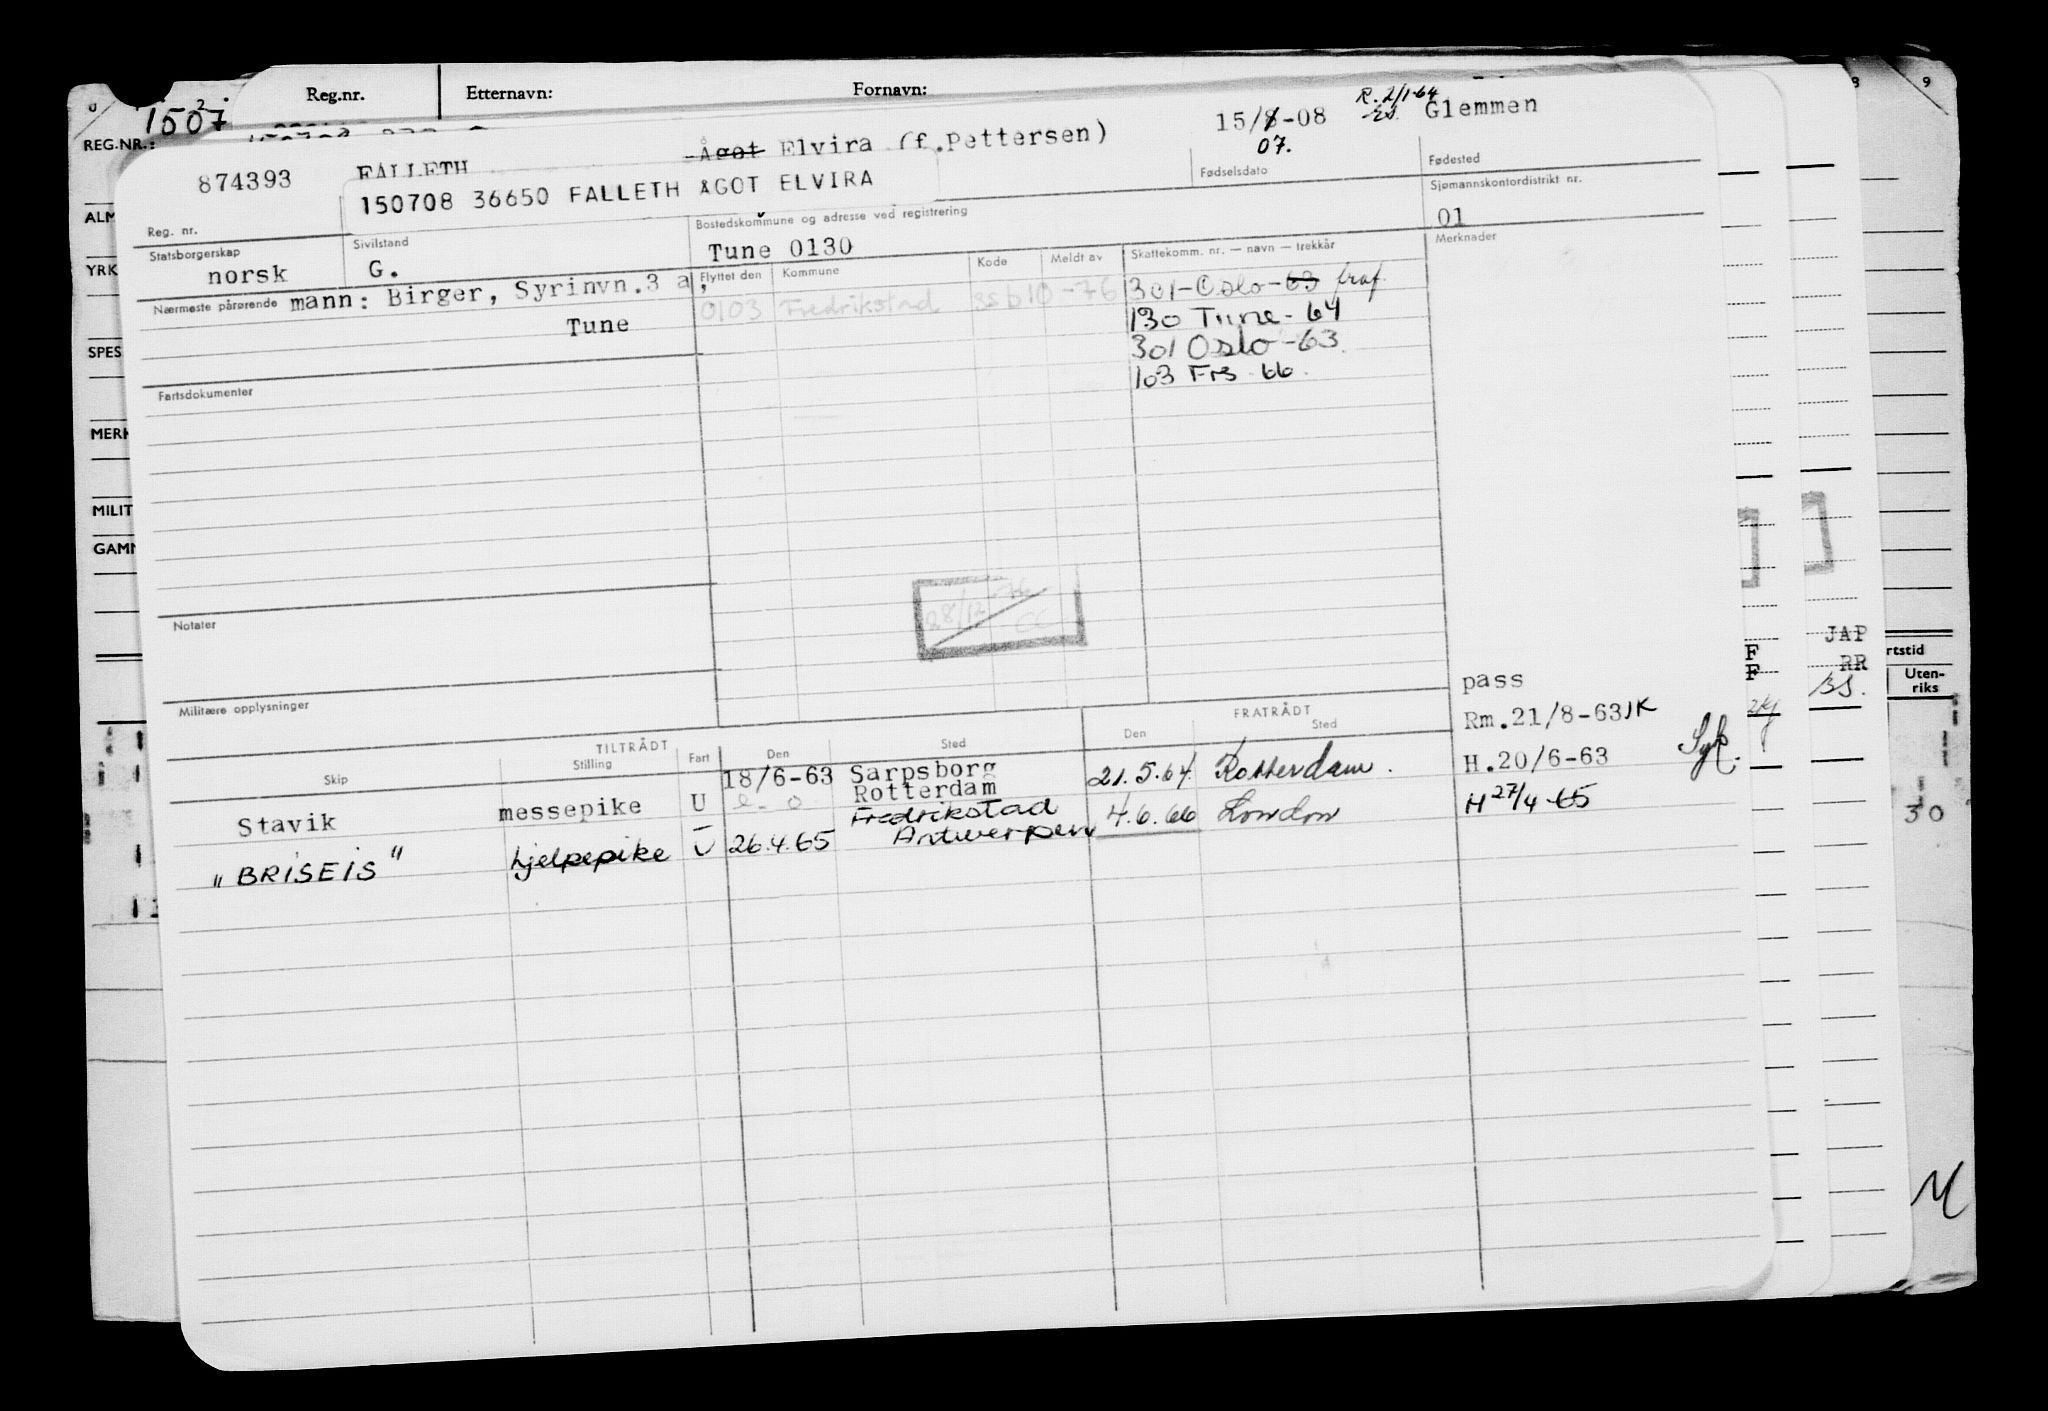 Reg.nr. Etternavn: Fornavn:
1507
REG.NR.:
874393 FALLETH Ågot Elvira (f.Pettersen) 15/8-08 R. 2/1-64 Glemmen
07.
150708 36650 FALLETH ÅGOT ELVIRA
Fødselsdato Fødested
Reg. nr. Sjømannskontordistrikt nr.
01
Statsborgerskap Sivilstand Bostedskommune og adresse ved registrering
norsk G. Tune 0130
Flyttet den Kommune Kode Meldt av Skattekomm. nr. — navn — trekkår Merknader
Nærmeste pårørende mann: Birger, Syrinvn.3 a,
Tune
0103 Fredrikstad
301-Oslo-63 fraf.
130 Tune - 64
301 Oslo -63.
103 Frs 66.
Fartsdokumenter
28/12 -76
Notater
Militære opplysninger
pass
Rm.21/8-63 JK
H.20/6-63
H 27/4-65
TILTRÅDT FRATRÅDT
Skip Stilling Fart Den Sted Den Sted
Stavik messepike U 18/6-63 Sarpsborg 21.5.64. Rotterdam.
Rotterdam
"BRISEIS" hjelpepike U 26.4.65 Fredrikstad 4.6.66 London
Antwerpen
ALM
YRK
SPES
MERK
MILIT
GAMN
8 9
JAP
F
F RR
BS.
rtstid
Uten-
riks
30
M